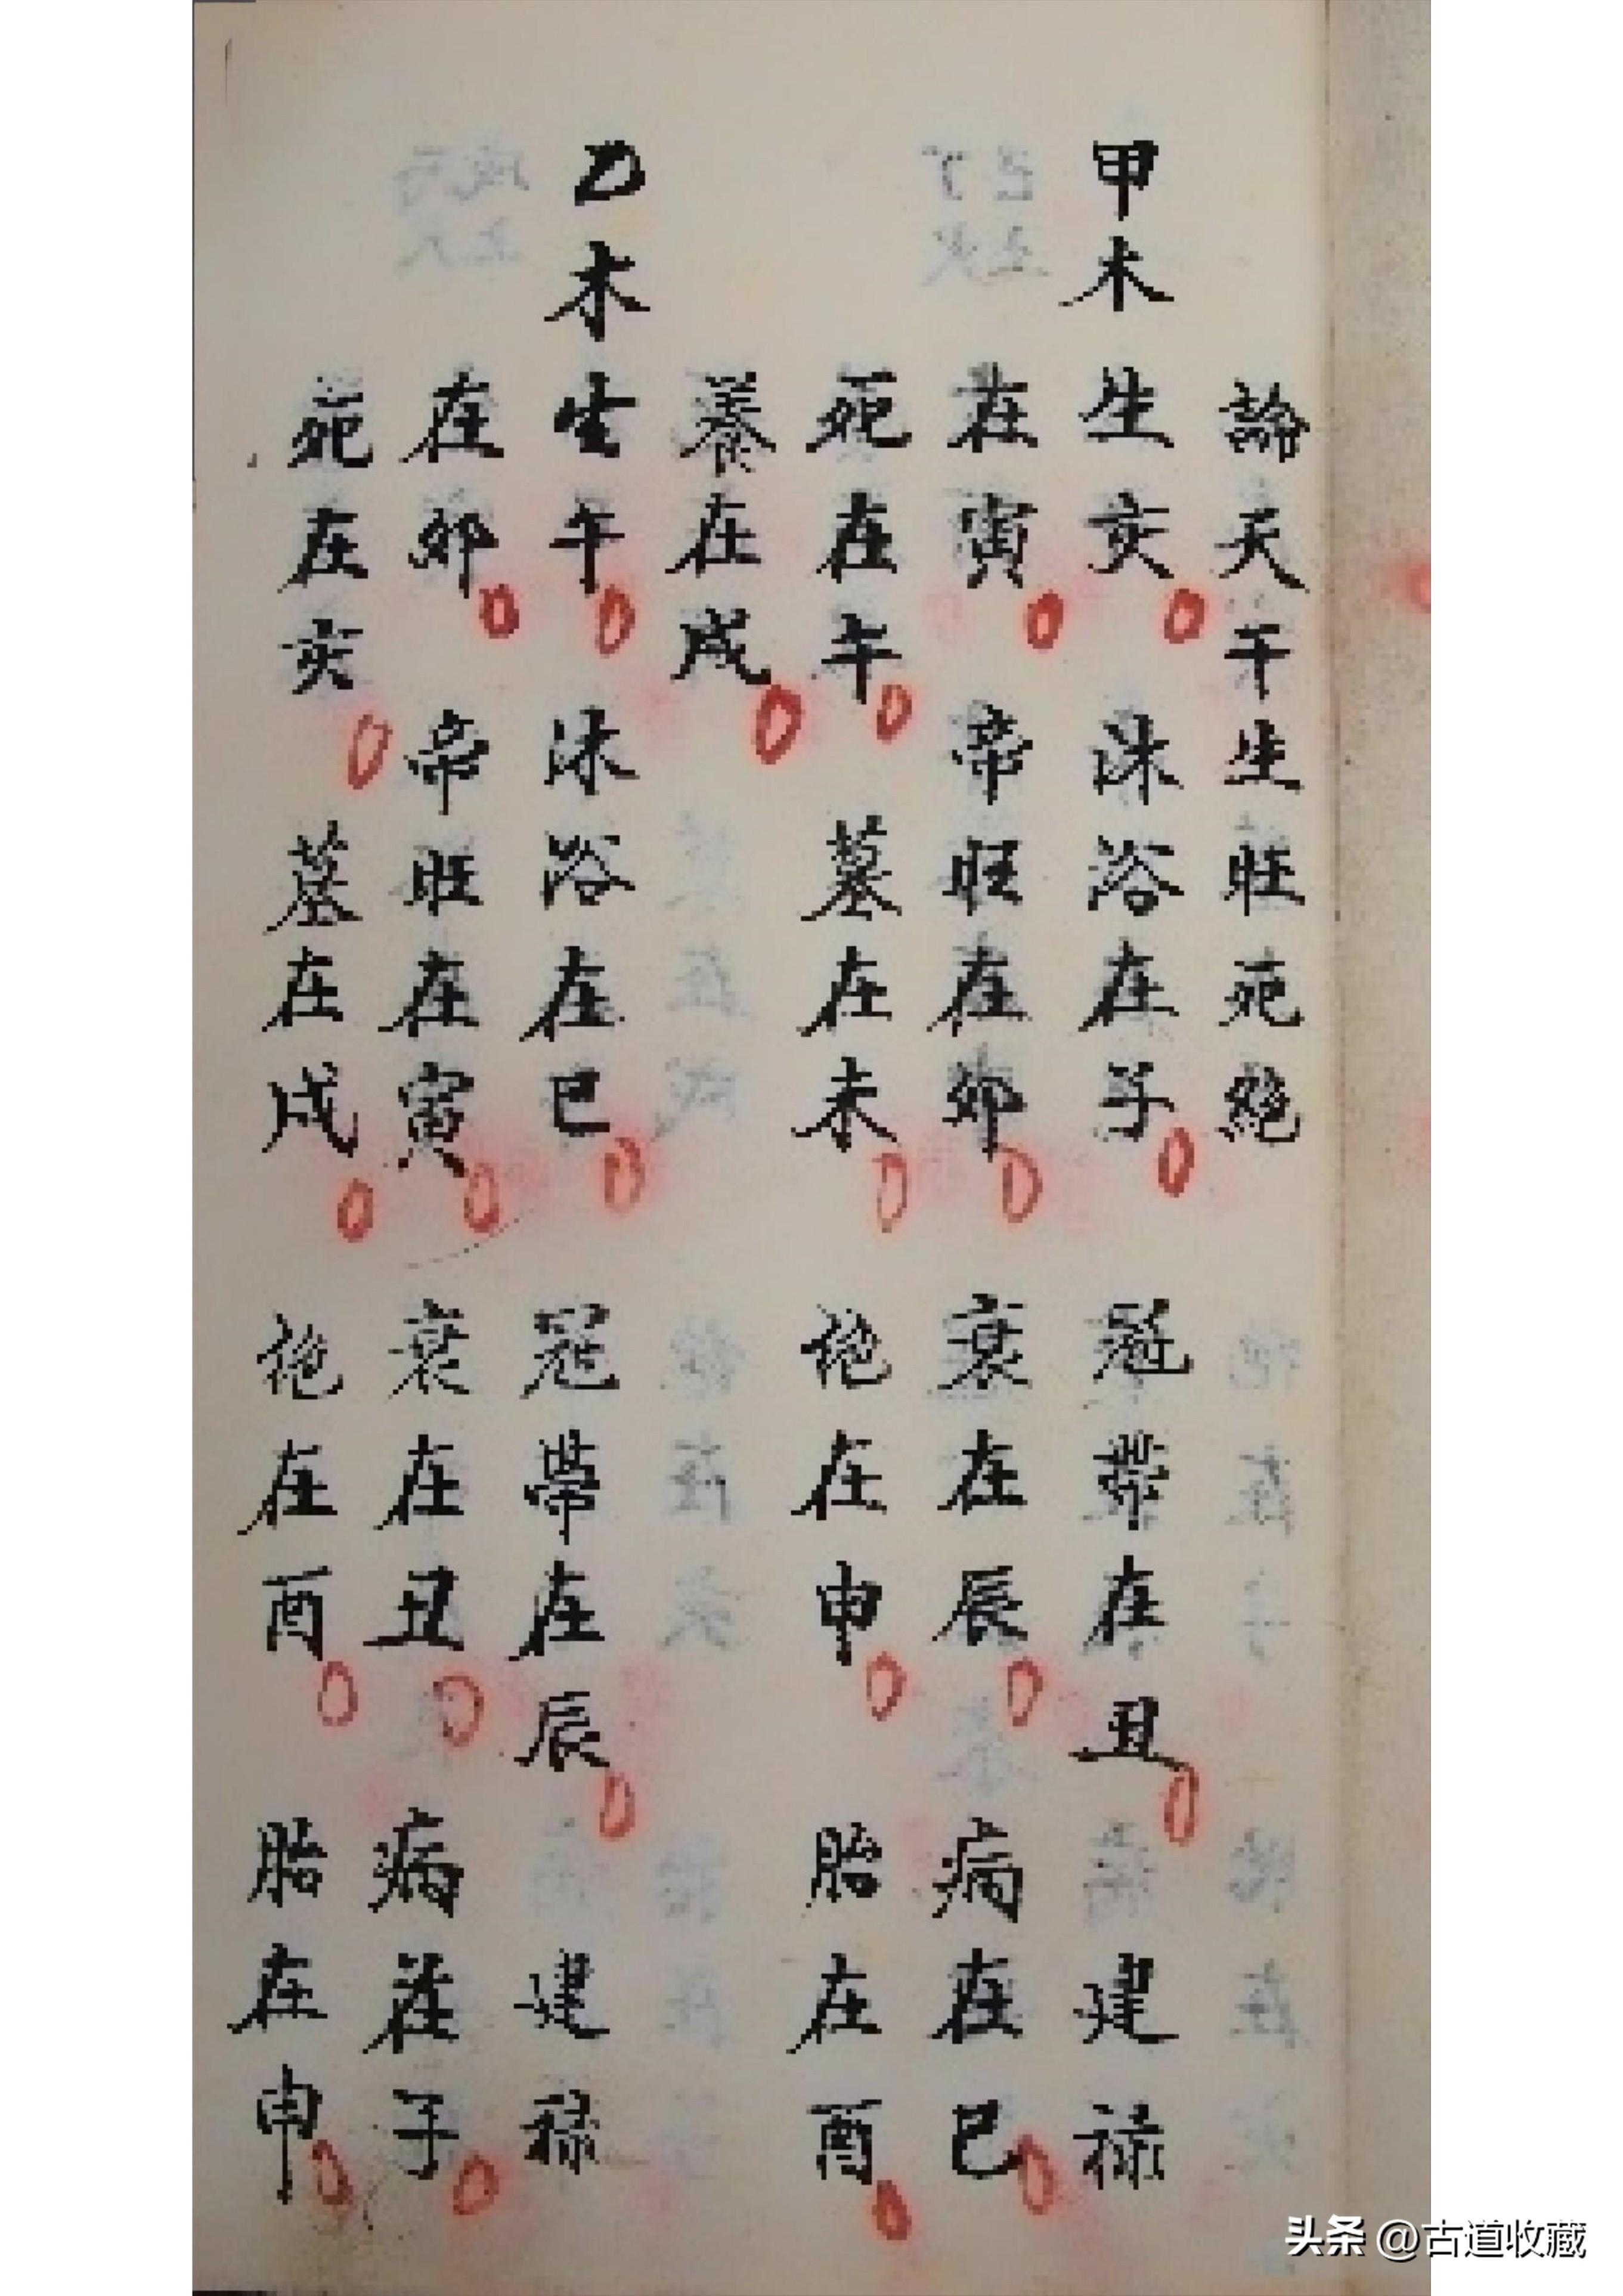 論天干生旺死絕
甲木 生亥 沐浴在子 冠帶在丑 建祿
在寅 帝旺在卯 衰在辰 病在巳
死在午 墓在未 絶在申 胎在酉
養在戌
乙木 生午 沐浴在巳 冠帶在辰 建祿
在卯 帝旺在寅 衰在丑 病在子
死在亥 墓在戌 絶在酉 胎在申
头条 @古道收藏